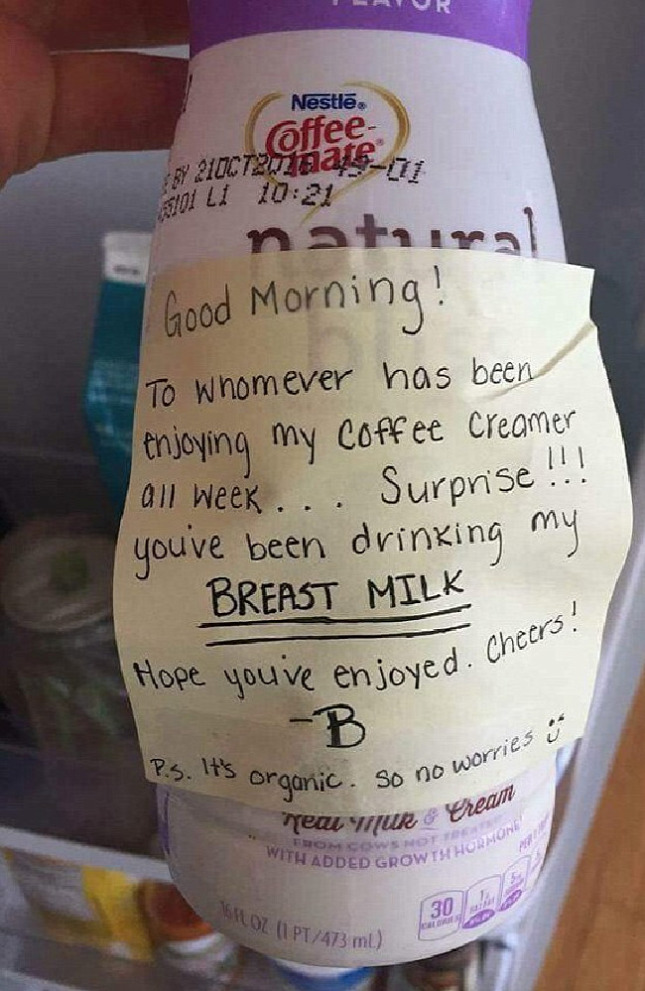 FLAVOR
Nestlé®
Coffee-
mate®
BY 21OCT2016 49-01
L1 10:21
natural
Good Morning!
To whomever has been
enjoying my coffee creamer
all week.... Surprise!!!
you've been drinking my
BREAST MILK
Hope you've enjoyed. Cheers!
-B
P.s. It's organic. so no worries
Real Milk & Cream
FROM COWS NOT TREATED
WITH ADDED GROWTH HORMONE
16 FL OZ (1 PT/473 mL)
30
CALORIES